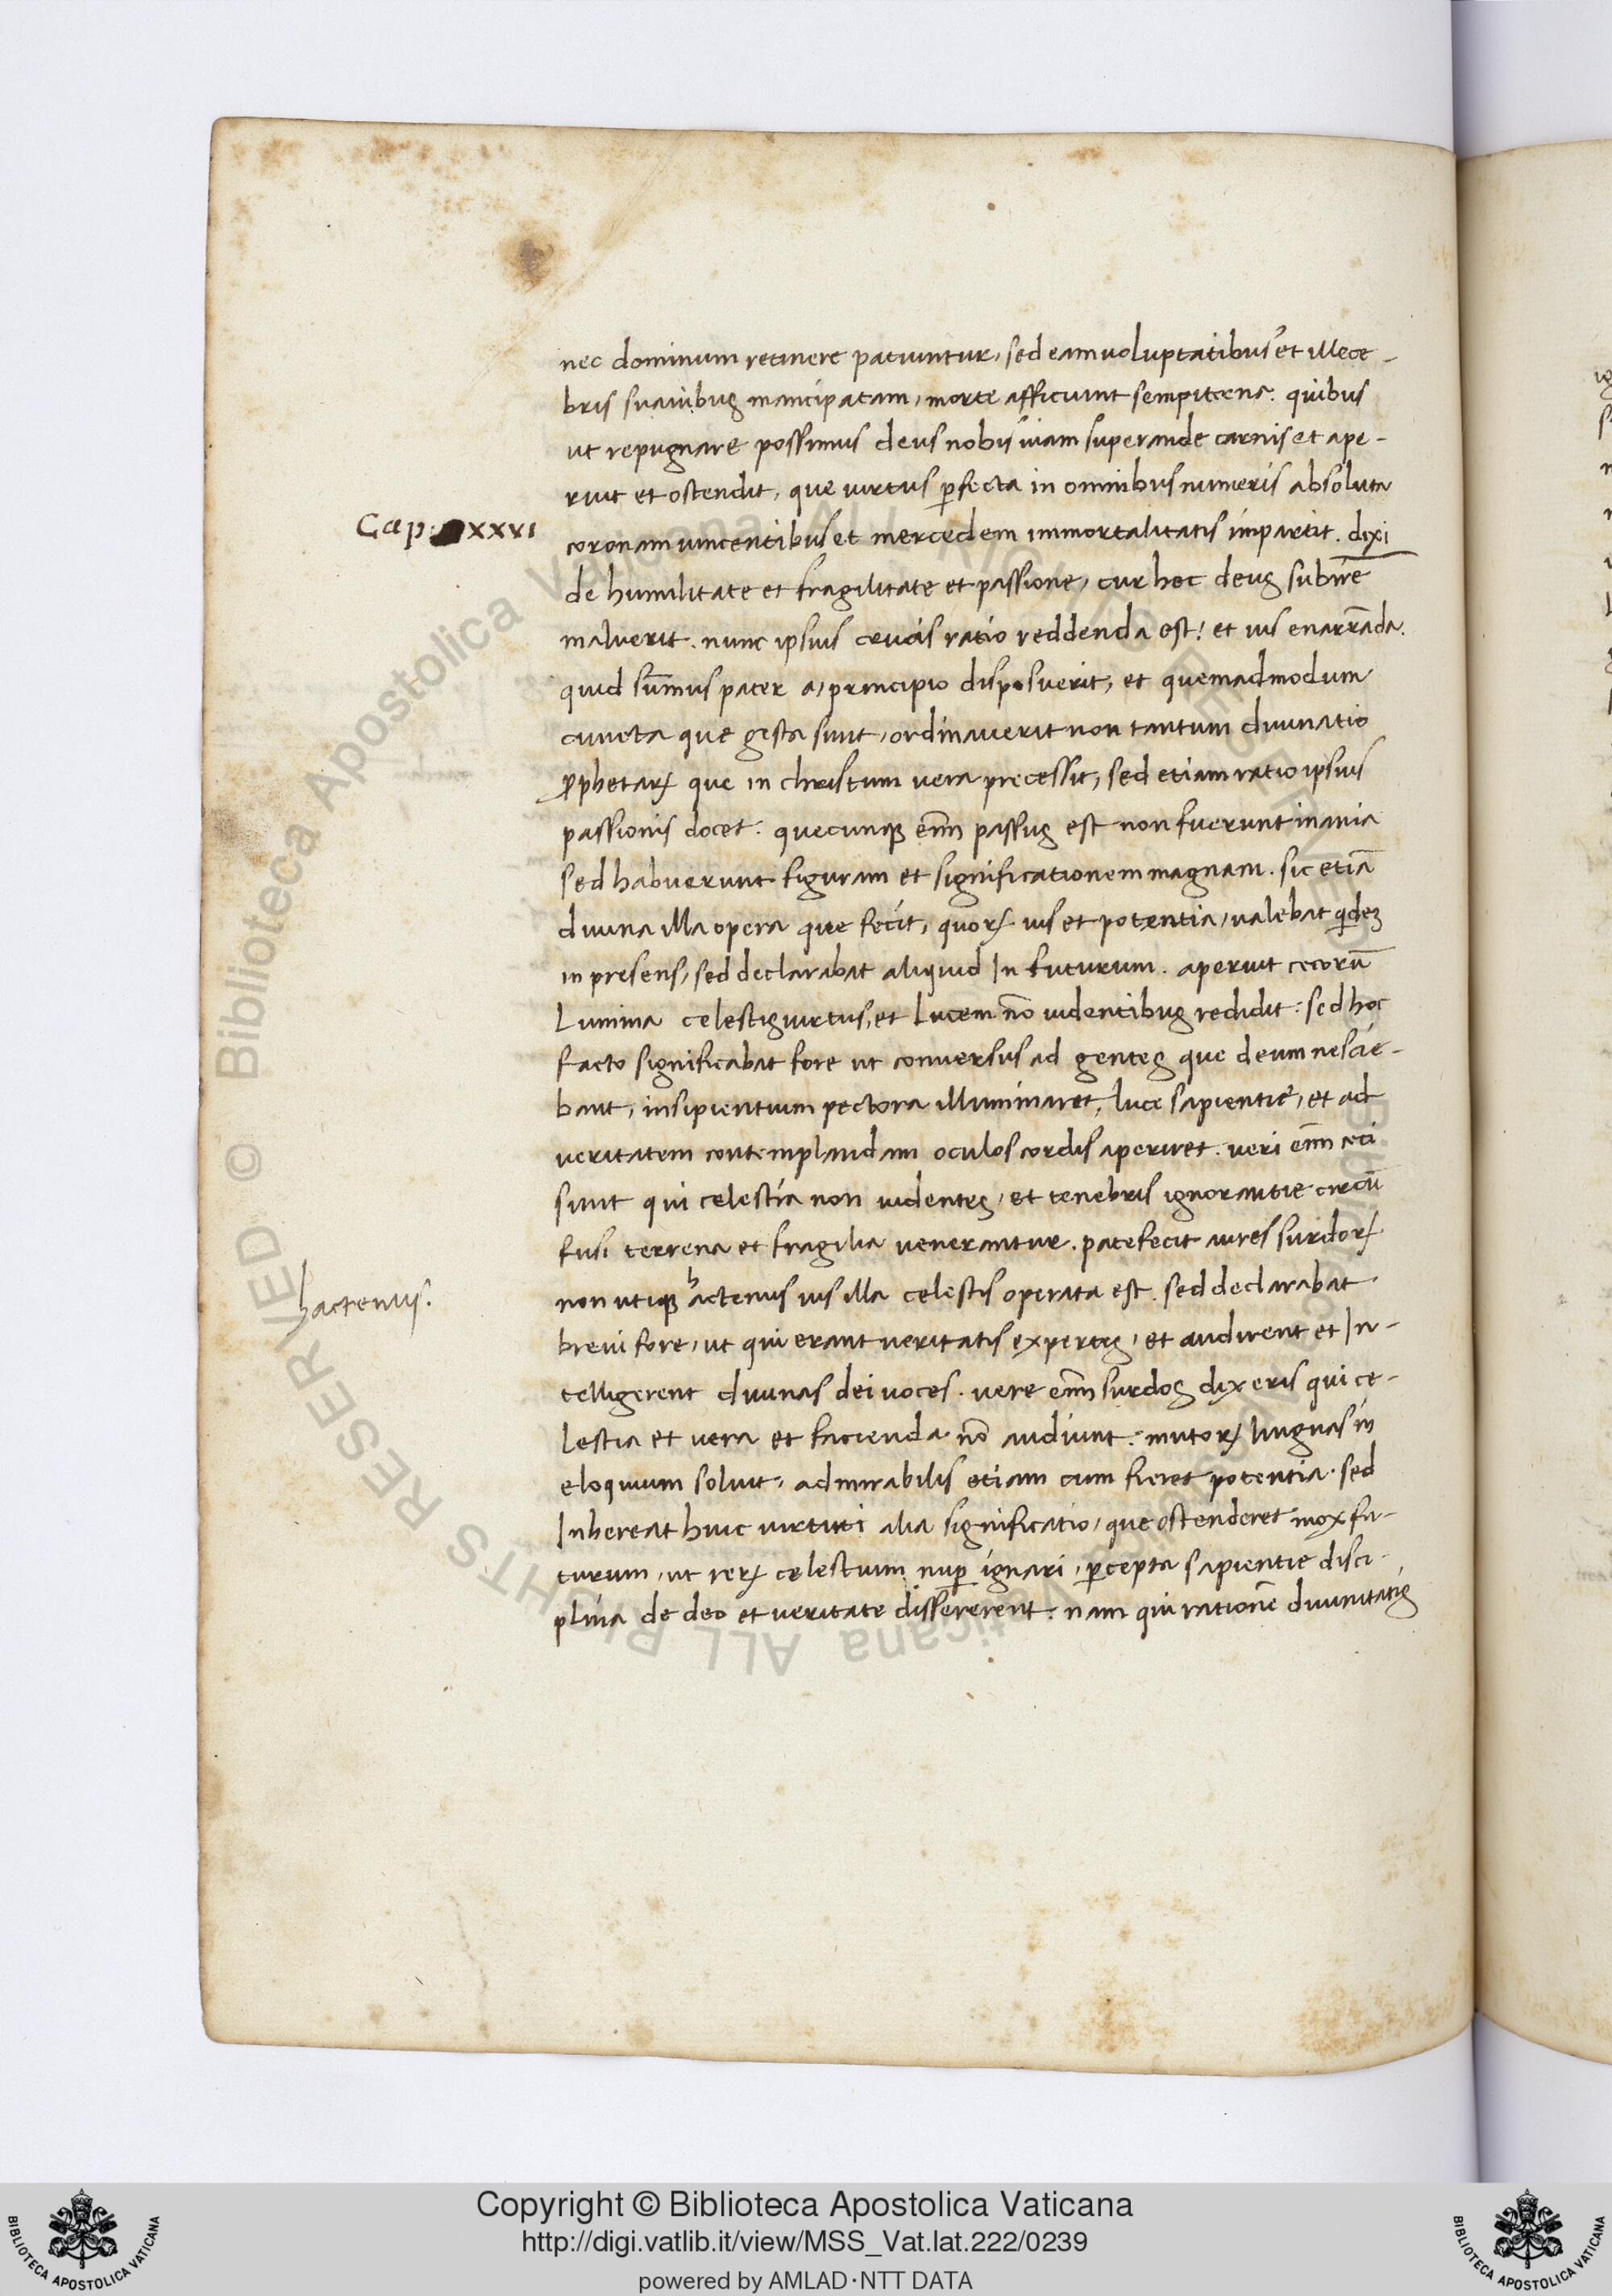 nec dominum retinere patiuntur, sed eam uoluptatibus et illece-
bris suauibus mancipatam, morte afficiunt sempiterna. quibus
ut repugnare possimus deus nobis uiam superande carnis et ape-
ruit et ostendit, que uirtus ꝑfecta in omnibus numeris absoluta
Cap. xxvi
coronam uincentibus et mercedem immortalitatis impartit. dixi
de humilitate et fragilitate et passione, cur hec deus subire
maluerit. nunc ipsius crucis ratio reddenda est! et uis enarrãda.
quid sũmus pater a, principio disposuerit, et quemadmodum
cuncta que gesta sunt, ordinauerit non tantum diuinatio
ꝓphetaꝝ que in christum uera precessit, sed etiam ratio ipsius
passionis docet. quecunqꝫ em̃ passus est non fuerunt inania
sed habuerunt figuram et significationem magnam. sic etiã
diuina illa opera que fecit, quoꝝ uis et potentia, ualebat qͥdeꝫ
in presens, sed declarabat aliquid In futurum. aperuit cecorũ
Lumina celestis uirtus, et Lucem nõ uidentibus redidit: sed hoc
facto significabat fore ut conuersus ad gentes que deum nescie-
bant, insipientium pectora illuminaret, luce sapientie, et ad
ueritatem contemplandam oculos cordis aperiret. ueri em̃ ceci
sunt qui celestia non uidentes, et tenebris ignorantie circũ
fusi terrena et fragilia uenerantur. patefecit aures surdoꝝ
hactenus.
non utiqꝫ hactenus uis illa celestis operata est. sed declarabat
breui fore, ut qui erant ueritatis expertes, et audirent et In-
telligerent diuinas dei uoces. uere em̃ surdos dixeris qui ce-
lestia et uera et facienda nõ audiunt. mutoꝝ linguas in
eloquium soluit, admirabilis etiam cum fieret potentia. sed
Inhereat huic uirtuti alia significatio, que ostenderet mox fu-
turum, ut reꝝ celestium nuꝑ ignari, ꝑcepta sapientie disci-
plina de deo et ueritate dissererent. nam qui rationẽ diuinitatis
© Biblioteca Apostolica Vaticana ALL RIGHTS RESERVED
Copyright © Biblioteca Apostolica Vaticana
http://digi.vatlib.it/view/MSS_Vat.lat.222/0239
powered by AMLAD·NTT DATA
BIBLIOTECA APOSTOLICA VATICANA
BIBLIOTECA APOSTOLICA VATICANA